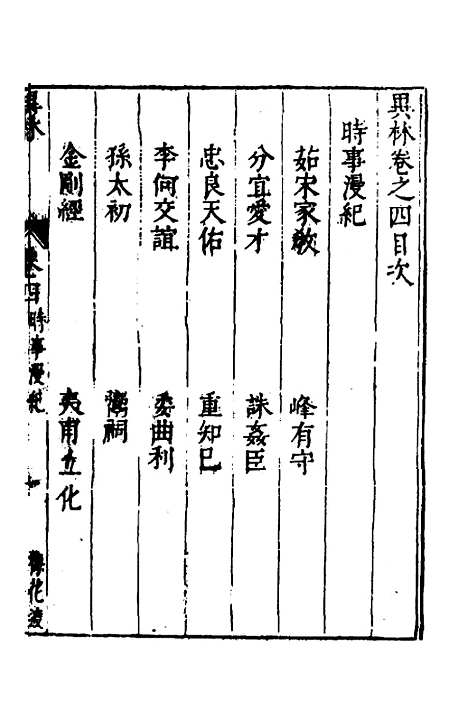 異林卷之四目次
時事漫紀
茹宋家教
峰有守
分宜愛才
誅姦臣
忠良天佑
重知己
李何交誼
委曲利
孫太初
鬻祠
金剛經
夷甫立化
異林
卷四時事漫紀
梅花渡